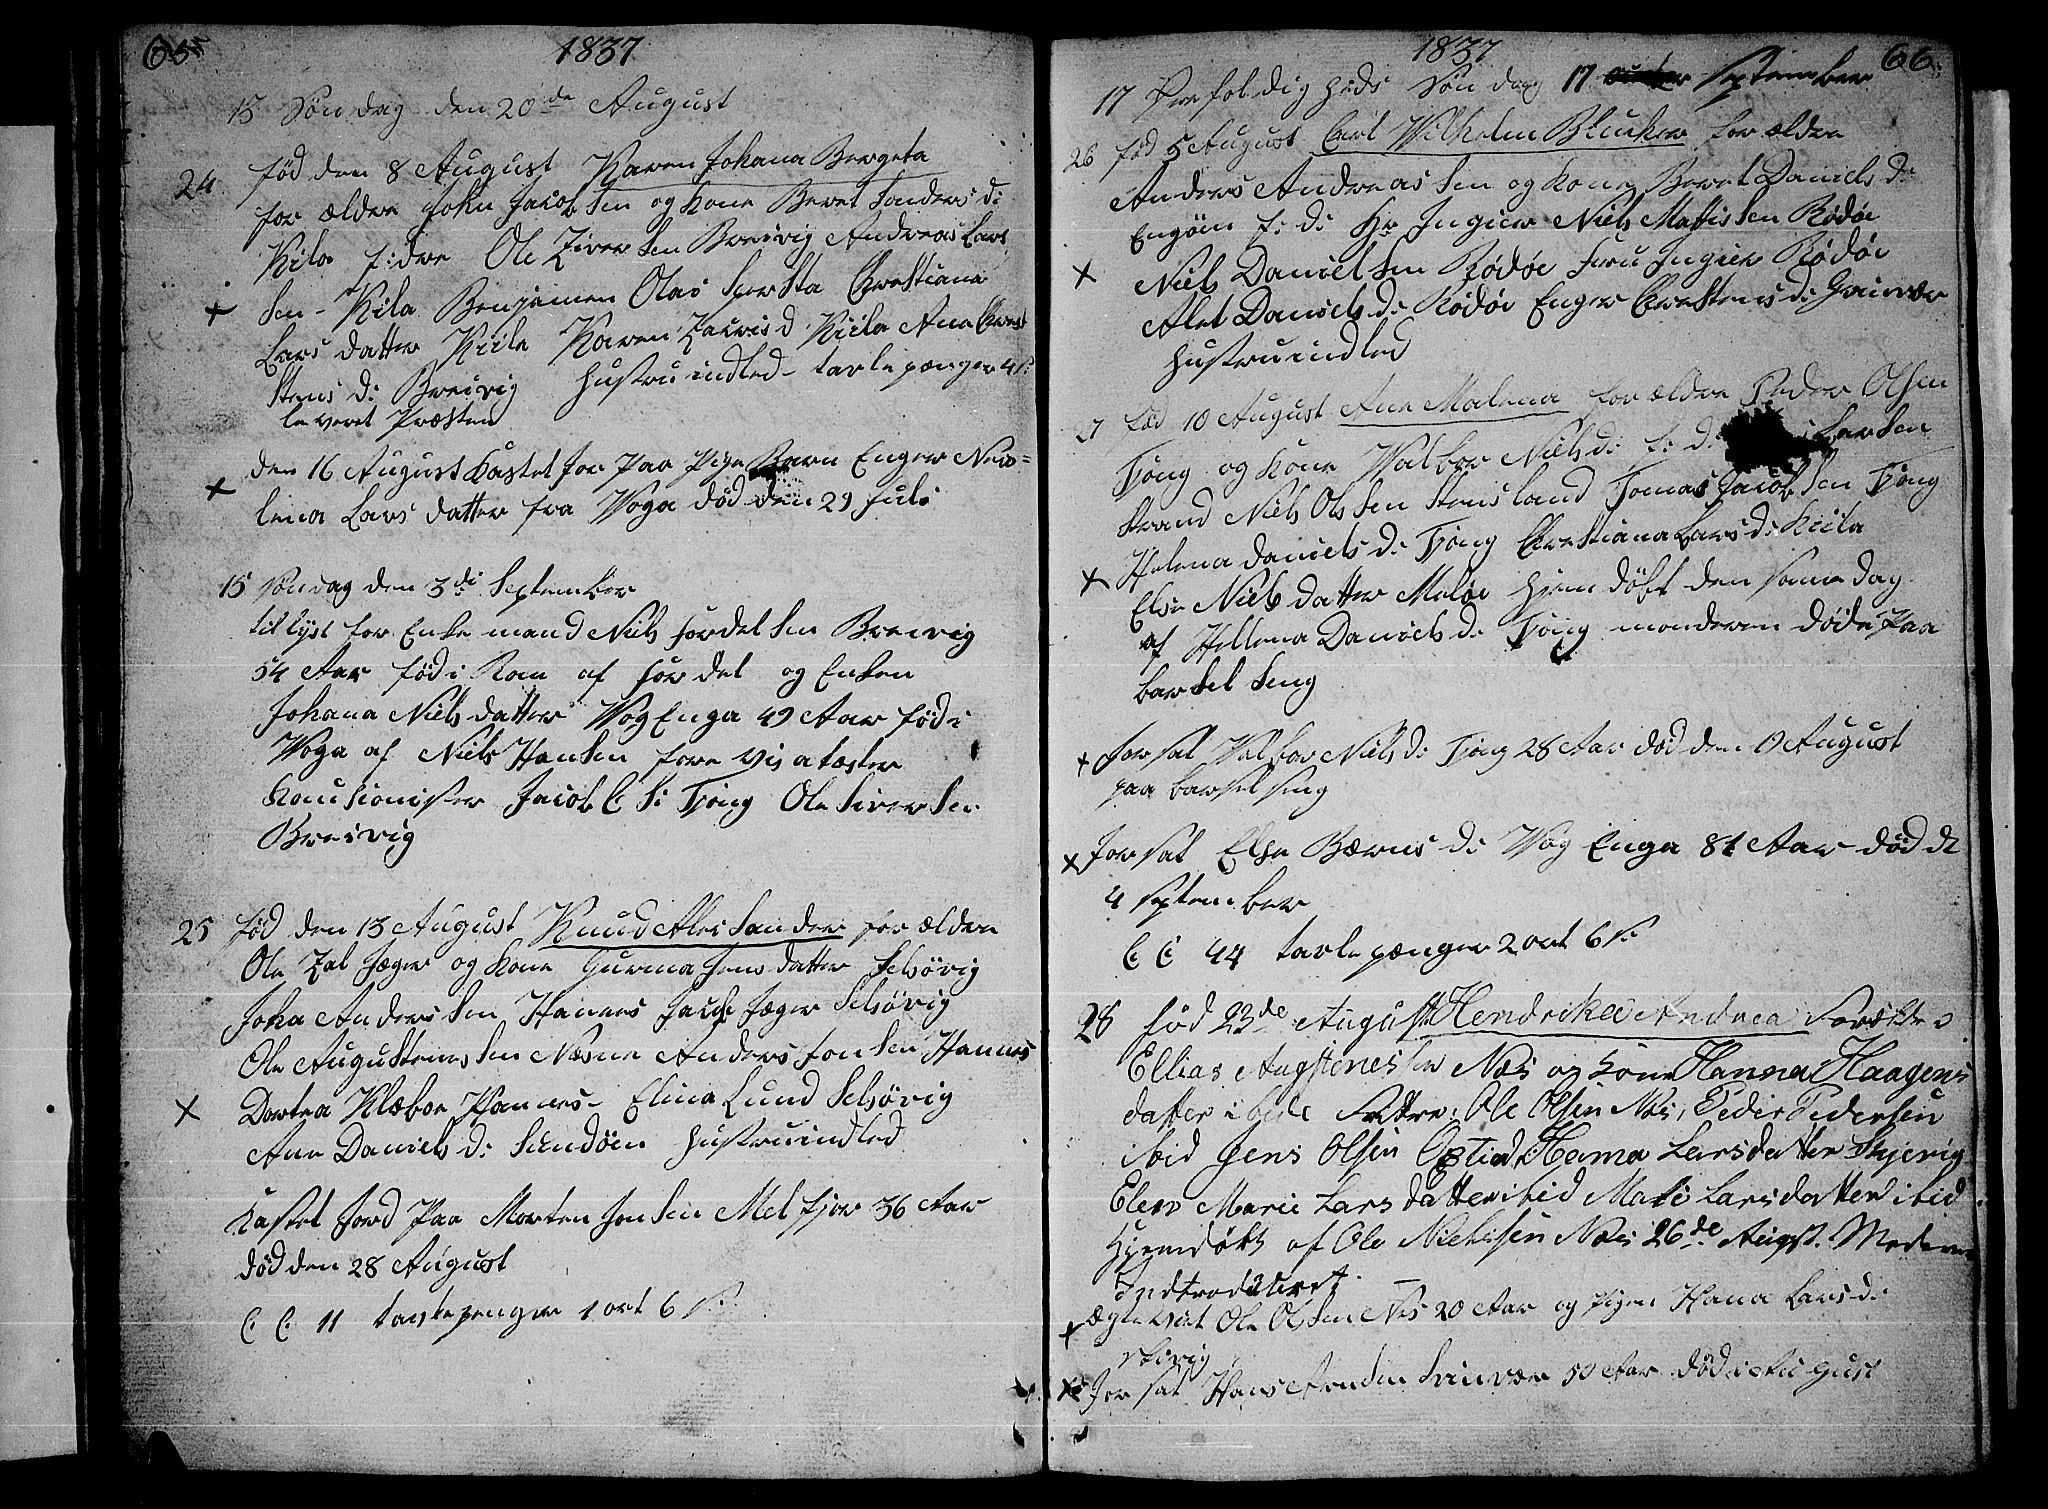 65
1837
15 Søndag den 20de August
24 fød den 8 August Karen Johana Bergeta
for ældre John Jacob Sen og kone Beret Sonders d:
Kila f:dre Ole Ziver Sen Breivig Andreas Lars
Sen - Kila Benjamen Olai Christiana
Lars datter Kiila Karen d Kiila Ane Chrest
Stens d: Breivig hustru indled - tavle pænger 4 s:
leveret Præsten
den 16 August Kastet Jor Paa Pige Barn Enger Neco=
lena Lars datter fra Voga død den 29 Juli
15 Søndag den 3di September
til lyst for Enke mand Niels Jordel Sen Breivig
54 Aar fød i Ran af Jordel og Enken
Johana Niels datter Vog Enga 49 Aar fød i
Voga af Niels Hansen fore vis atæster
Kautionister Jacob C S: Tjong Ole Siver Sen
Breivig
25 fød den 13 August Knud Alexsander for ældre
Ole Zal Jæger og kone Gurina Jens datter Selsøvig
Joha Anders Sen Hannes Jacob Jæger Selsøvig
Ole Augustenus Sen Næsne Anders Jon Sen Hannes
Dortea Klæboe Hannes - Elina Lund Selsøvig
Ane Daniels d: Sundøen hustru indled
Kastet Jord Paa Morten Jensen Mel fjor 36 Aar
død den 28 August
C C 11 tavle penger 1 ort 6 s:
1837
66
17 Trefoldigheds Søndag 17 September
26 fød 5 August Carl Wilhelm Blunker for ældre
Anders Andreas Sen og kone Beret Daniels d:
Engøen f: d: Hr Ingier Niels Mathisen Rødøe
Niels Daniel Sen Rødøe fru Ingier Rødøe
Alet Daniels d: Rødøe Enger Chrestens d: Grinvær
hustru indled
27 fød 10 August Ane Malena for ældre Peder Olsen
Tjong og kone Valber Niels d: f: d: Larsen
Strand Niels Olsen Stensland Tomas Jacob Sen Tjong
Helena Daniels d: Tjong Chrestiana Lars d: Kiila
Else Niels datter Meløe hjem døbt den same dag
af Hellena Daniels d: Tjong moderen døde Paa
barsel Seng
Jorsat Valbor Niels d: Tjong 28 Aar død den 10 August
paa barsel seng
Jorsat Else Bærns d: Vog Enga 81 Aar død d:
4 September
C C 44 tavle pænger 2 ort 6 s:
28 fød 23de August Hendrikka Andrea Forældre
Ellias Augstinessen Næs og kone Hanna Haagens
datter ibid Fattre: Ole Olsen Næs, Peder Pedersen
ibid Jens Olsen Optid, Hanna Larsdatter Skjerig
Elen Marie Larsdatter ibid Mari Larsdatter ibid
Hjemdøbt af Ole Nielsen Næs 26de Augst. Moderen
Indtroduseret.
Ægte viet Ole Olsen Næs 20 Aar og Pigen Hana Lars d:
Jor sat Hans Arnsen Svinvær 50 Aar død i August